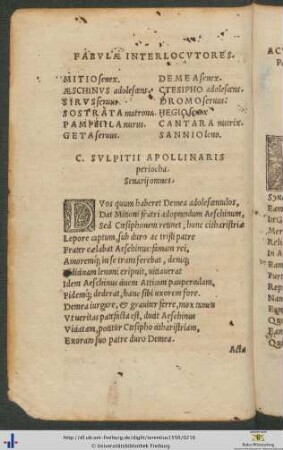 FABVLÆ INTERLOCVTORES.
MITIO senex. DEMEA senex.
ÆSCHINVS adolescens. CTESIPHO adolescens.
SIRVS servus. DROMO servus.
SOSTRATA matrona. HEGIO senex
PAMPHILA nurus. CANTARA nutrix.
GETA servus. SANNIO leno.
C. SVLPITII APOLLINARIS
periocha.
Senarij omnes.
DVos quum haberet Demea adolescentulos,
Dat Mitioni fratri adoptandum Aeschinum,
Sed Ctesiphonem retinet, hunc citharistriæ
Lepore captum, sub duro ac tristi patre
Frater cælabat Aeschinus: famam rei,
Amoremq; in se transferebat, deniq;
Fidicinam lenoni eripuit, vitiauerat
Idem Aeschinus ciuem Atticam pauperculam,
Fidemq; dederat, hanc sibi uxorem fore.
Demea iurgare, & grauiter ferre, mox tamen
Vt ueritas patefacta est, ducit Aeschinus
Vitiatam, potitur Ctesipho citharistriam,
Exorato suo patre duro Demea.
Acta
Universitätsbibliothek Freiburg